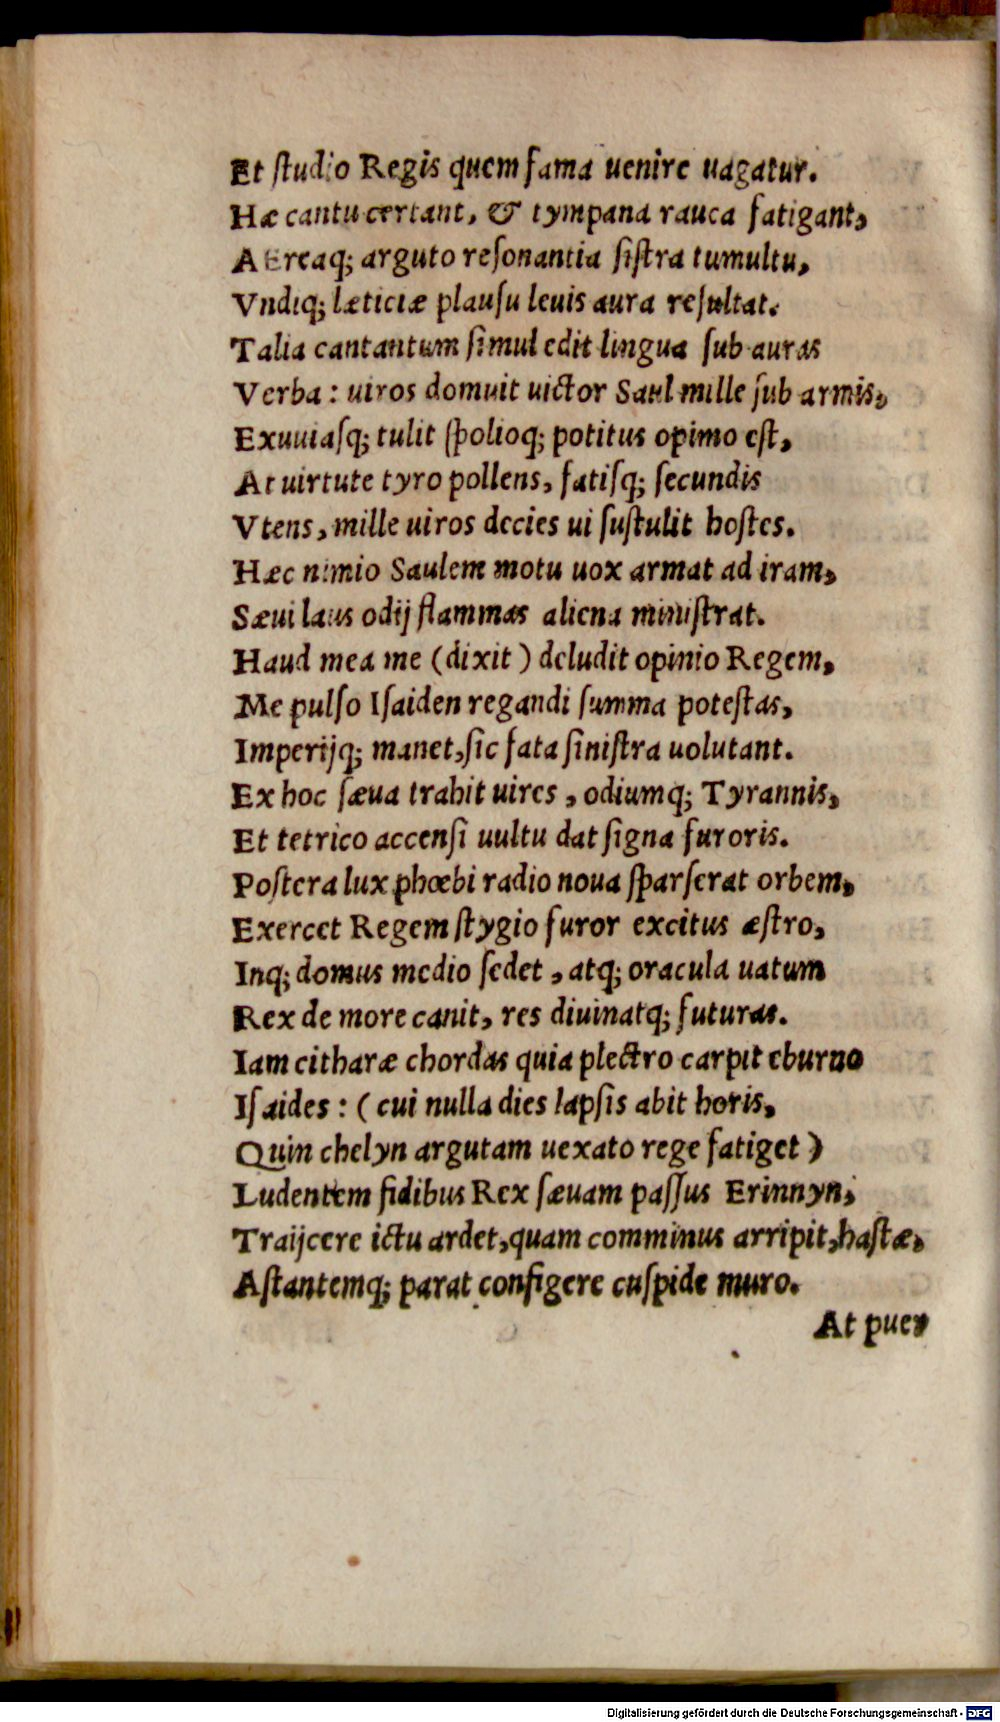 Et ſtudio Regis quem fama uenire uagatur.
Hæ cantu certant, & tympana rauca fatigant,
AEreaq; arguto reſonantia ſiſtra tumultu,
Vndiq; læticiæ plauſu leuis aura reſultat.
Talia cantantum ſimul edit lingua ſub auras
Verba: uiros domuit uictor Saul mille ſub armis,
Exuuiaſq; tulit ſpolioq; potitus opimo eſt,
At uirtute tyro pollens, fatiſq; ſecundis
Vtens, mille uiros decies ui ſuſtulit hoſtes.
Hæc nimio Saulem motu uox armat ad iram,
Sæui laus odij flammas aliena miniſtrat.
Haud mea me (dixit) deludit opinio Regem,
Me pulſo Iſaiden regandi ſumma poteſtas,
Imperijq; manet, ſic fata ſiniſtra uolutant.
Ex hoc ſæua trahit uires, odiumq; Tyrannis,
Et tetrico accenſi uultu dat ſigna furoris.
Poſtera lux phœbi radio noua ſparſerat orbem,
Exercet Regem ſtygio furor excitus æſtro,
Inq; domus medio ſedet, atq; oracula uatum
Rex de more canit, res diuinatq; futuras.
Iam citharæ chordas quia plectro carpit eburno
Iſaides: (cui nulla dies lapſis abit horis,
Quin chelyn argutam uexato rege fatiget)
Ludentem fidibus Rex ſæuam paſſus Erinnyn,
Traijcere ictu ardet, quam comminus arripit, haſtæ,
Aſtantemq; parat configere cuſpide muro.
At puer
Digitalisierung gefördert durch die Deutsche Forschungsgemeinschaft - DFG